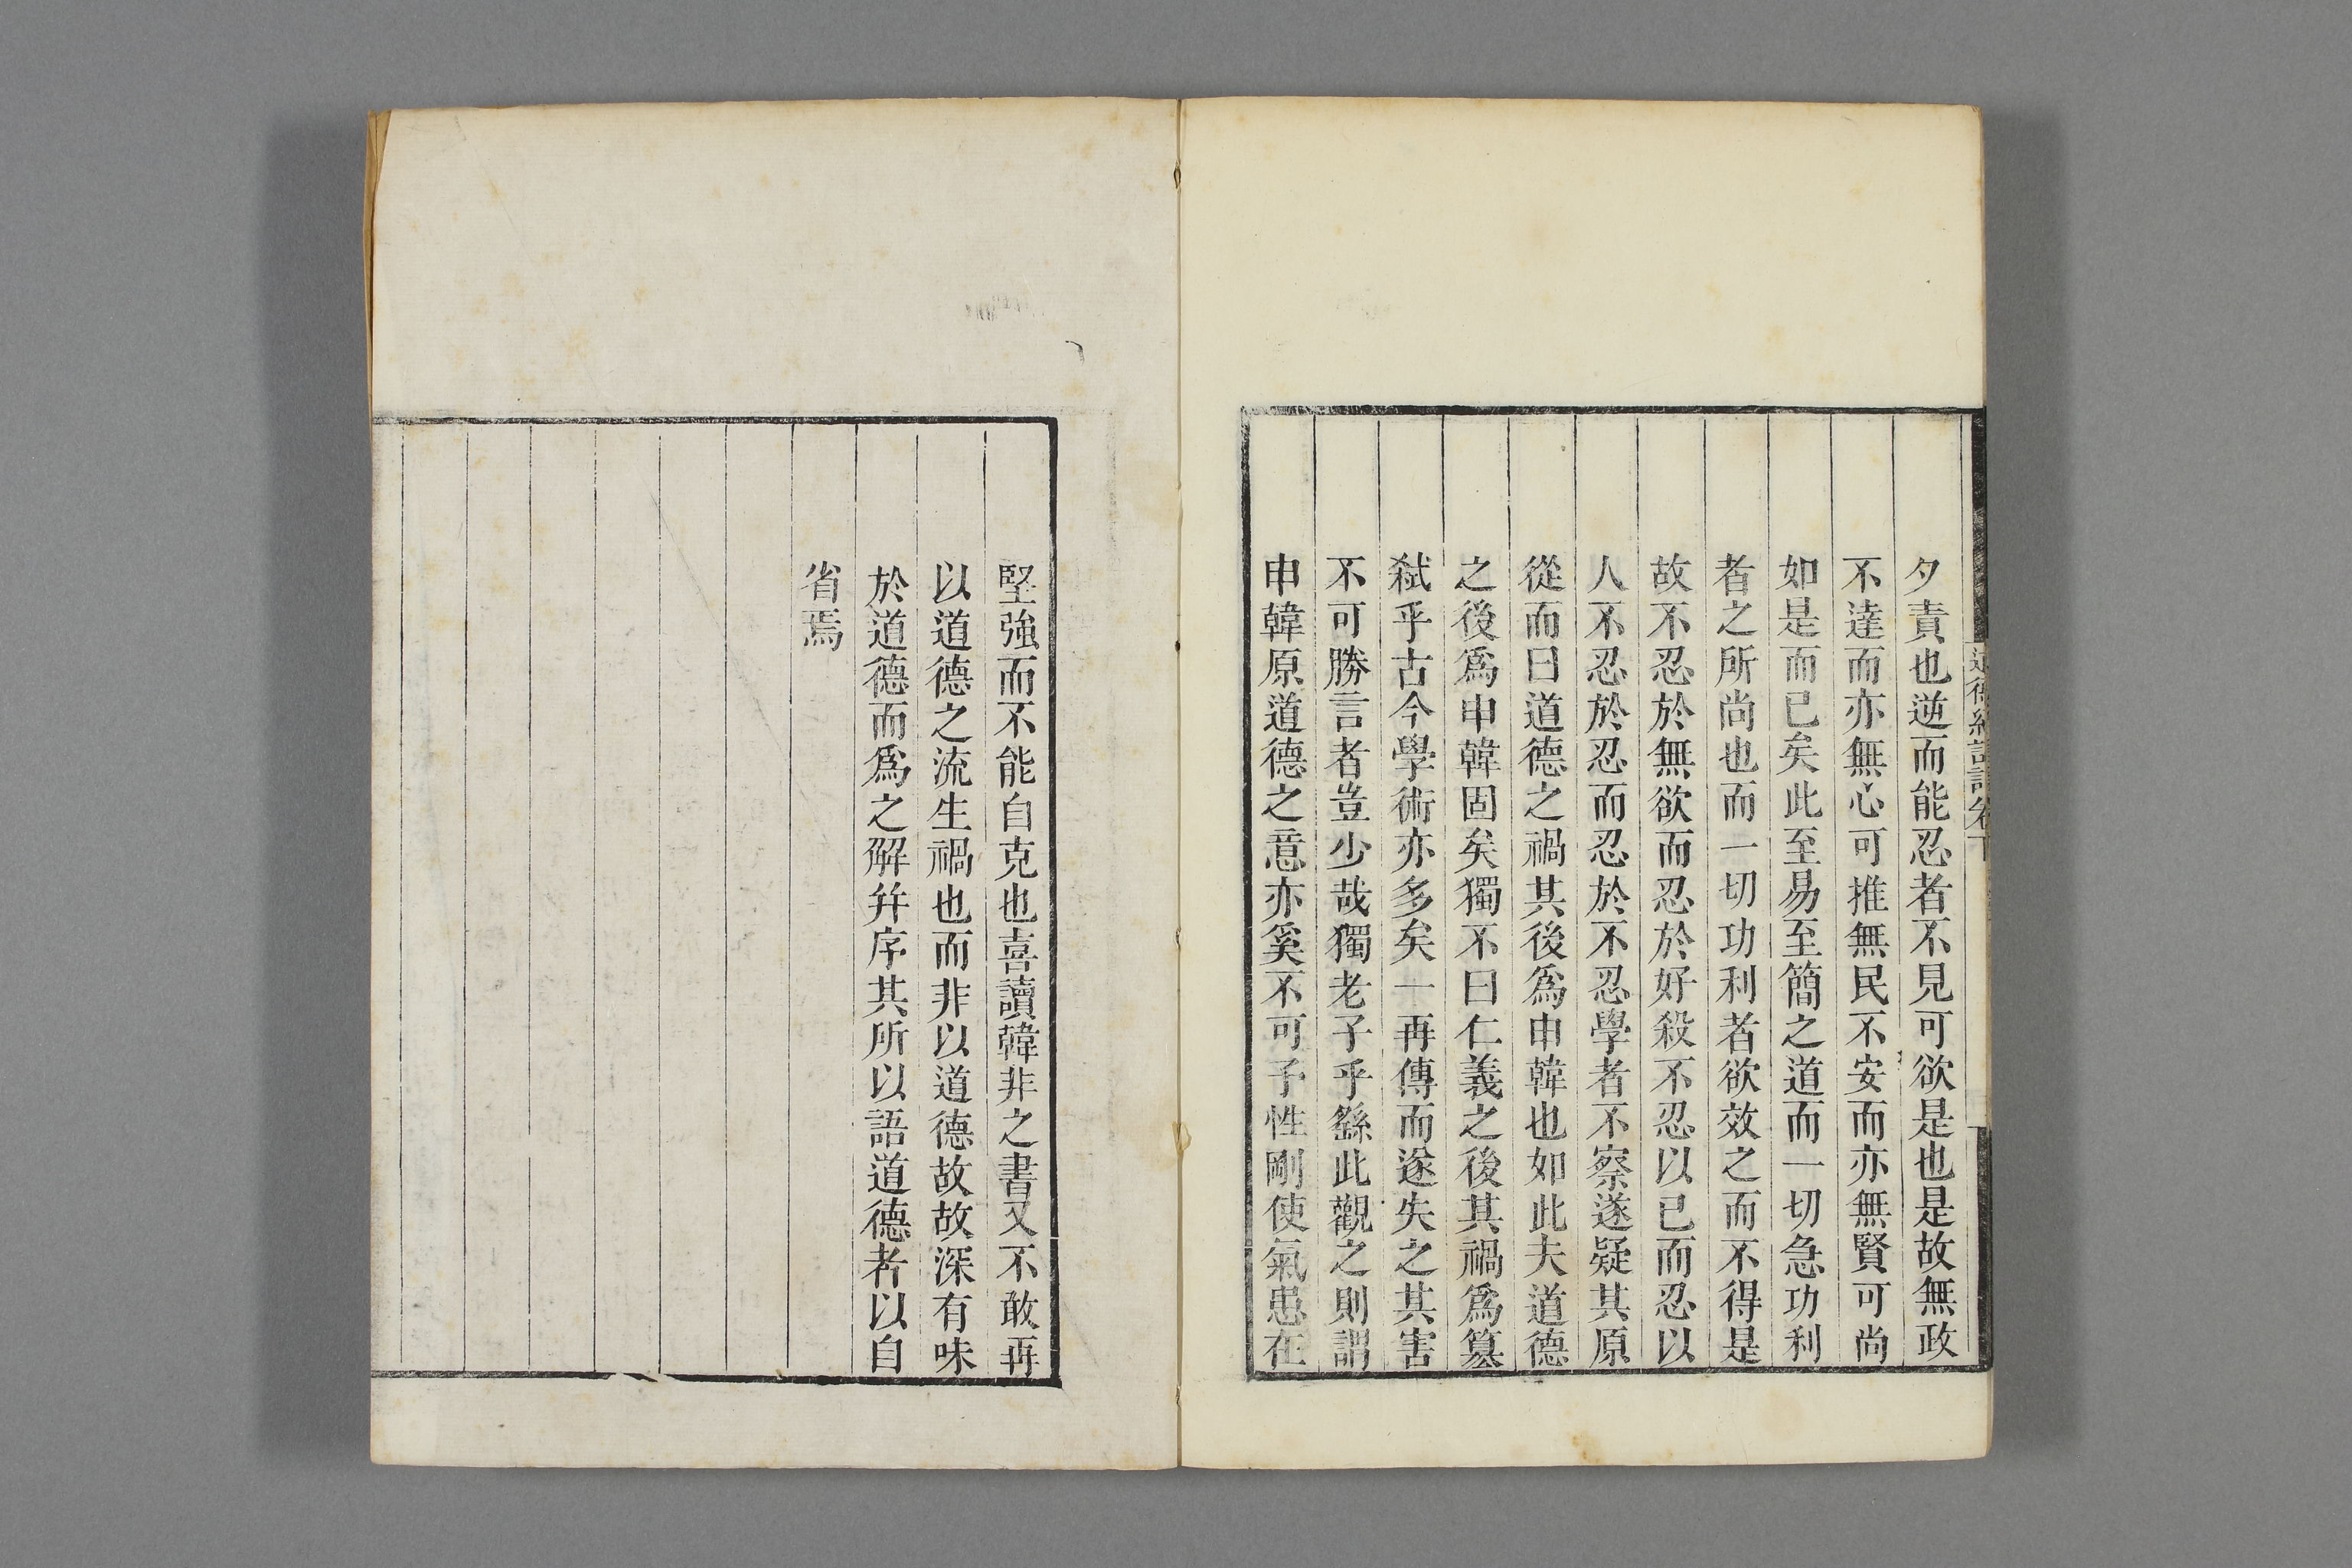 夕責也逆而能忍者不見可欲是也是故無政
不達而亦無心可推無民不安而亦無賢可尚
如是而已矣此至易至簡之道而一切急功利
者之所尚也而一切功利者欲效之而不得是
故不忍於無欲而忍於好殺不忍以已而忍以
人不忍於忍而忍於不忍學者不察遂疑其原
從而曰道德之禍其後爲申韓也如此夫道德
之後爲申韓固矣獨不曰仁義之後其禍爲篡
弒乎古今學術亦多矣一再傳而遂失之其害
不可勝言者豈少哉獨老子乎繇此觀之則謂
申韓原道德之意亦奚不可予性剛使氣患在
堅強而不能自克也喜讀韓非之書又不敢再
以道德之流生禍也而非以道德故故深有味
於道德而爲之解并序其所以語道德者以自
省焉